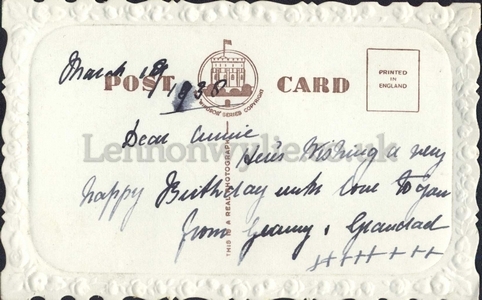 March 18/1938
POST CARD
WINDSOR SERIES COPYRIGHT
PRINTED IN ENGLAND
THIS IS A REAL PHOTOGRAPH
Lennonwylie.co.uk
Dear Annie
Wishing a very
happy Birthday with love to you
from Granny & Grandad
+++++++